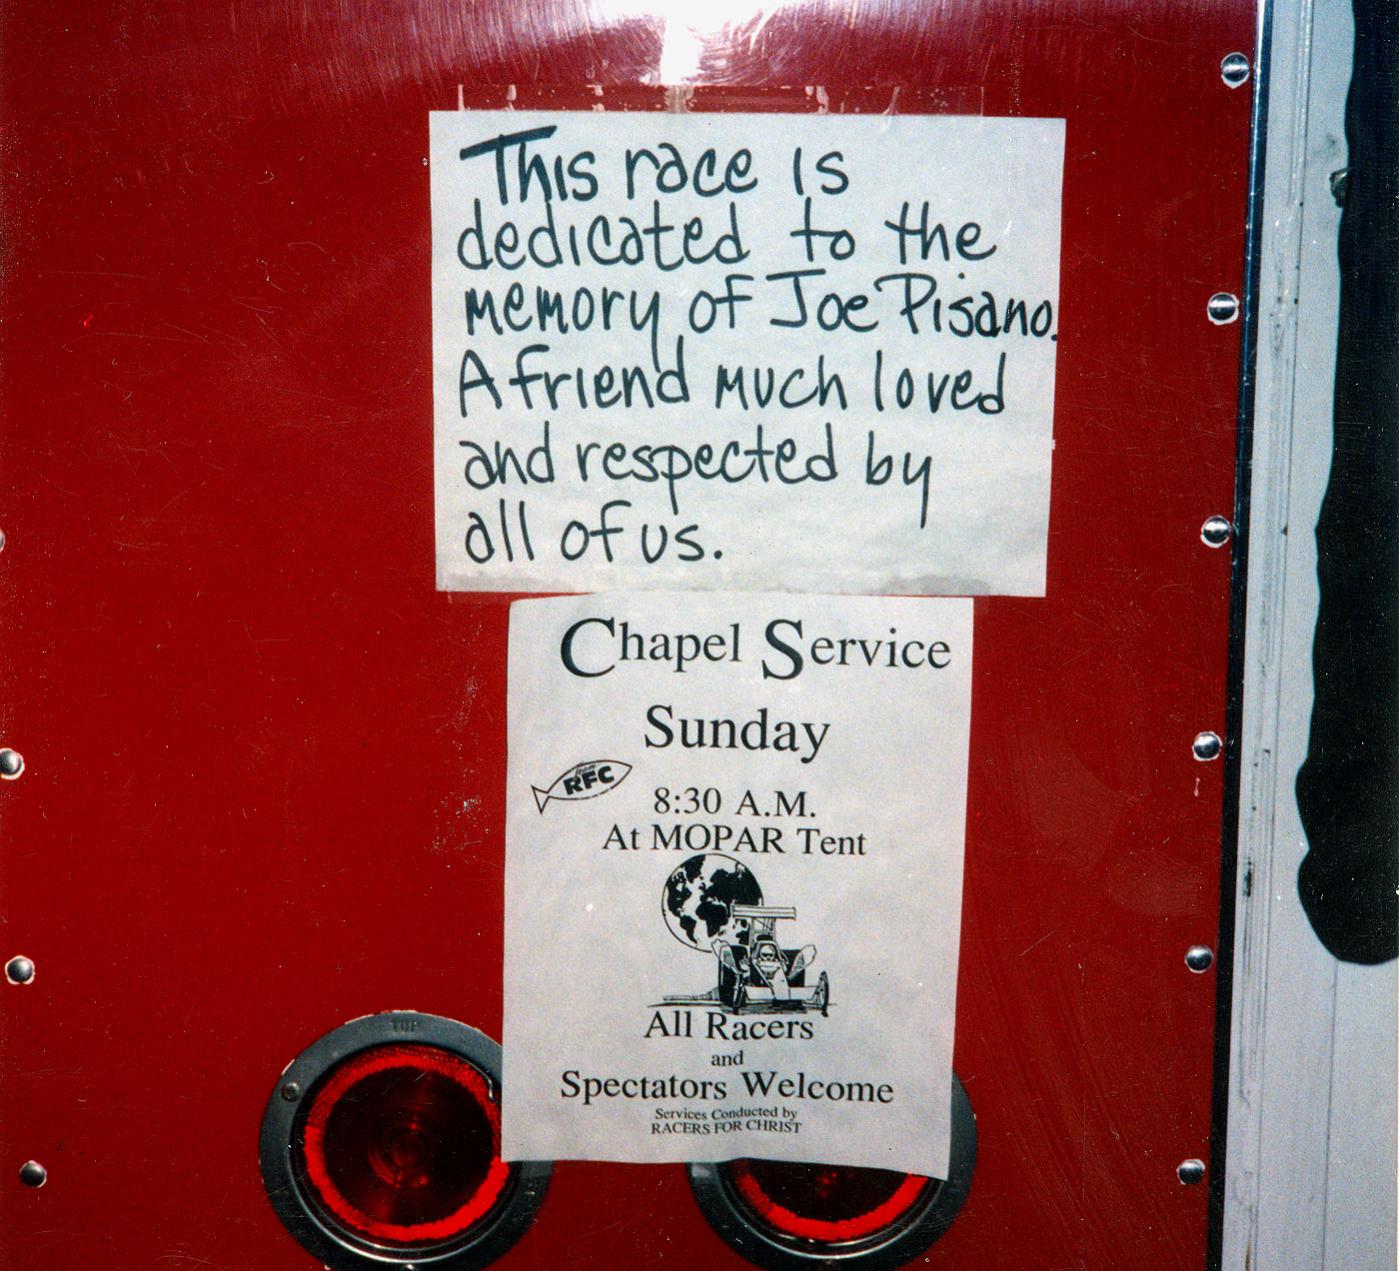 This race is
dedicated to the
memory of Joe Pisano.
A friend much loved
and respected by
all of us.
Chapel Service
Sunday
Team
RFC
8:30 A.M.
At MOPAR Tent
All Racers
and
Spectators Welcome
Services Conducted by
RACERS FOR CHRIST
TOP